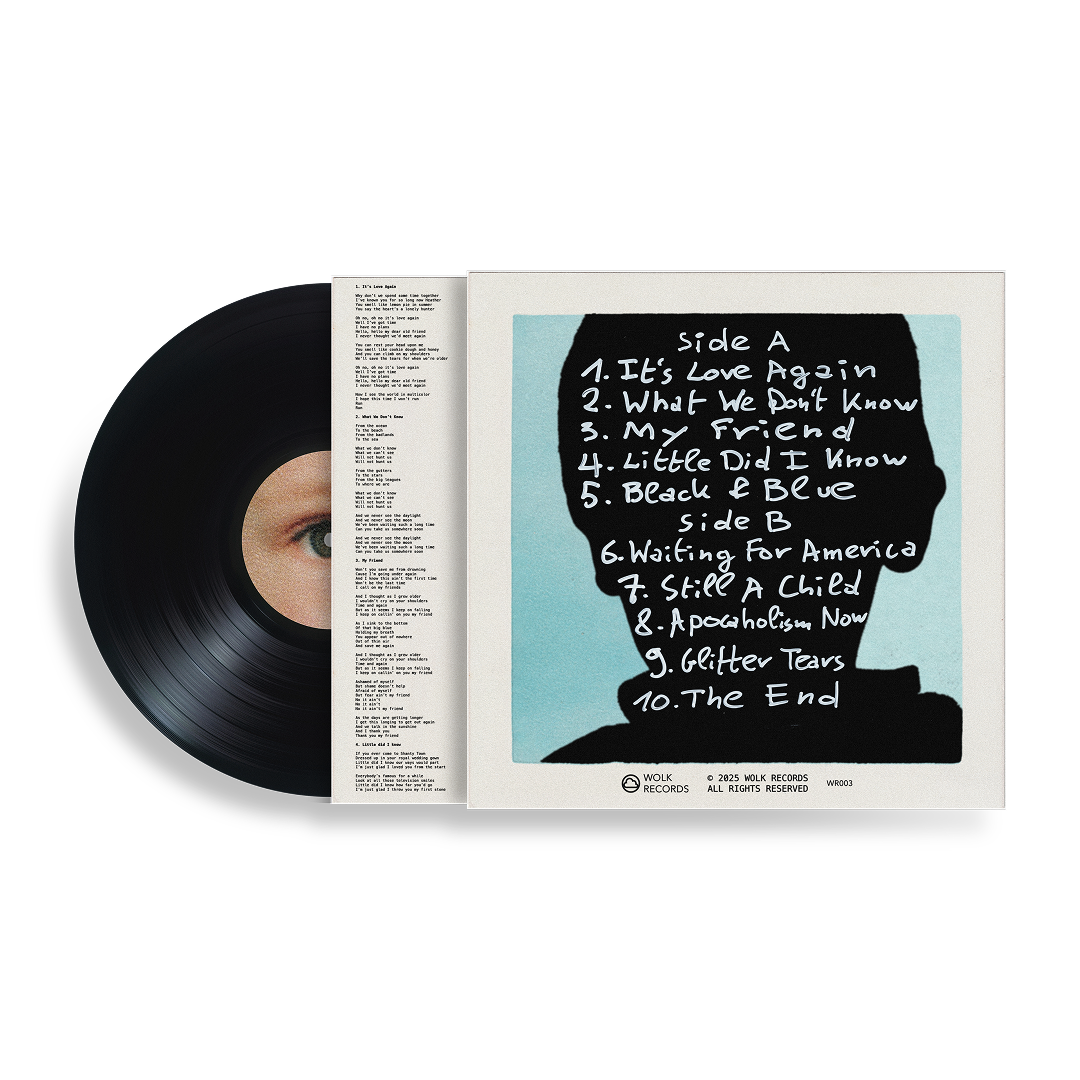 1. It's Love Again
Why don't we spend some time together
I've known you for so long now Heather
You smell like lemon pie in summer
You say the heart's a lonely hunter
Oh no, oh no it's love again
Well I've got time
I have no plans
Hello, hello my dear old friend
I never thought we'd meet again
You can rest your head upon me
You smell like cookie dough and honey
And you can climb on my shoulders
We'll save the tears for when we're older
Oh no, oh no it's love again
Well I've got time
I have no plans
Hello, hello my dear old friend
I never thought we'd meet again
Now I see the world in multicolor
I hope this time I won't run
Run
Run
2. What We Don't Know
From the ocean
To the beach
From the badlands
To the sea
What we don't know
What we can't see
Will not hunt us
Will not hunt us
From the gutters
To the stars
From the big leagues
To where we are
What we don't know
What we can't see
Will not hunt us
Will not hunt us
And we never see the daylight
And we never see the moon
We've been waiting such a long time
Can you take us somewhere soon
And we never see the daylight
And we never see the moon
We've been waiting such a long time
Can you take us somewhere soon
3. My Friend
Won't you save me from drowning
Cause I'm going under again
And I know this ain't the first time
Won't be the last time
I call on my friends
And I thought as I grew older
I wouldn't cry on your shoulders
Time and again
But as it seems I keep on falling
I keep on callin' on you my friend
As I sink to the bottom
Of that big blue
Holding my breath
You appear out of nowhere
Out of thin air
And save me again
And I thought as I grew older
I wouldn't cry on your shoulders
Time and again
But as it seems I keep on falling
I keep on callin' on you my friend
Ashamed of myself
But shame doesn't help
Afraid of myself
But fear ain't my friend
No it ain't
No it ain't
No it ain't my friend
As the days are getting longer
I got this longing to get out again
And we talk in the sunshine
And I thank you
Thank you my friend
4. Little did I know
If you ever come to Shanty Town
Dressed up in your royal wedding gown
Little did I know our ways would part
I'm just glad I loved you from the start
Everybody's famous for a while
Look at all these television smiles
Little did I know how far you'd go
I'm just glad I threw you my first stone
Side A
1. It's Love Again
2. What We Don't Know
3. My Friend
4. Little Did I Know
5. Black & Blue
Side B
6. Waiting For America
7. Still A Child
8. Apocaholism Now
9. Glitter Tears
10. The End
WOLK
RECORDS
© 2025 WOLK RECORDS
ALL RIGHTS RESERVED
WR003